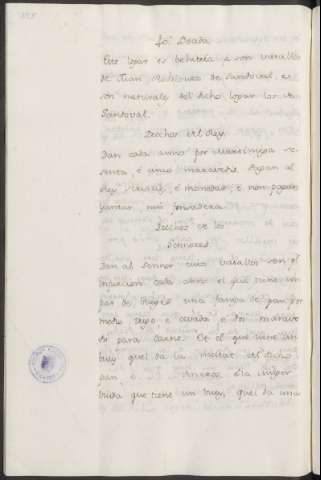 Este logar es behetria e son vasallos
de Juan Rodriguez de Sandoval, e
son naturales del dicho logar los de
Sandoval.
Derechos del Rey
Dan cada anno por Martiniega se
senta, e maravedis. Pagan al
Rey servicios, é monedas, é non pagan
yantar, nin fonsadera.
Derechos de los
Sennores
Dan al Sennor cuios vasallos son por
infurcion cada anno el que tiene un
par de Bueyes una fanega de pan por
medio trigo e cevada e dos maravedi
para carne. Et el que tiene un
buey quel da la meitat del dicho
pan e dineros. E la muger
biuda que tiene un buey, quel da una